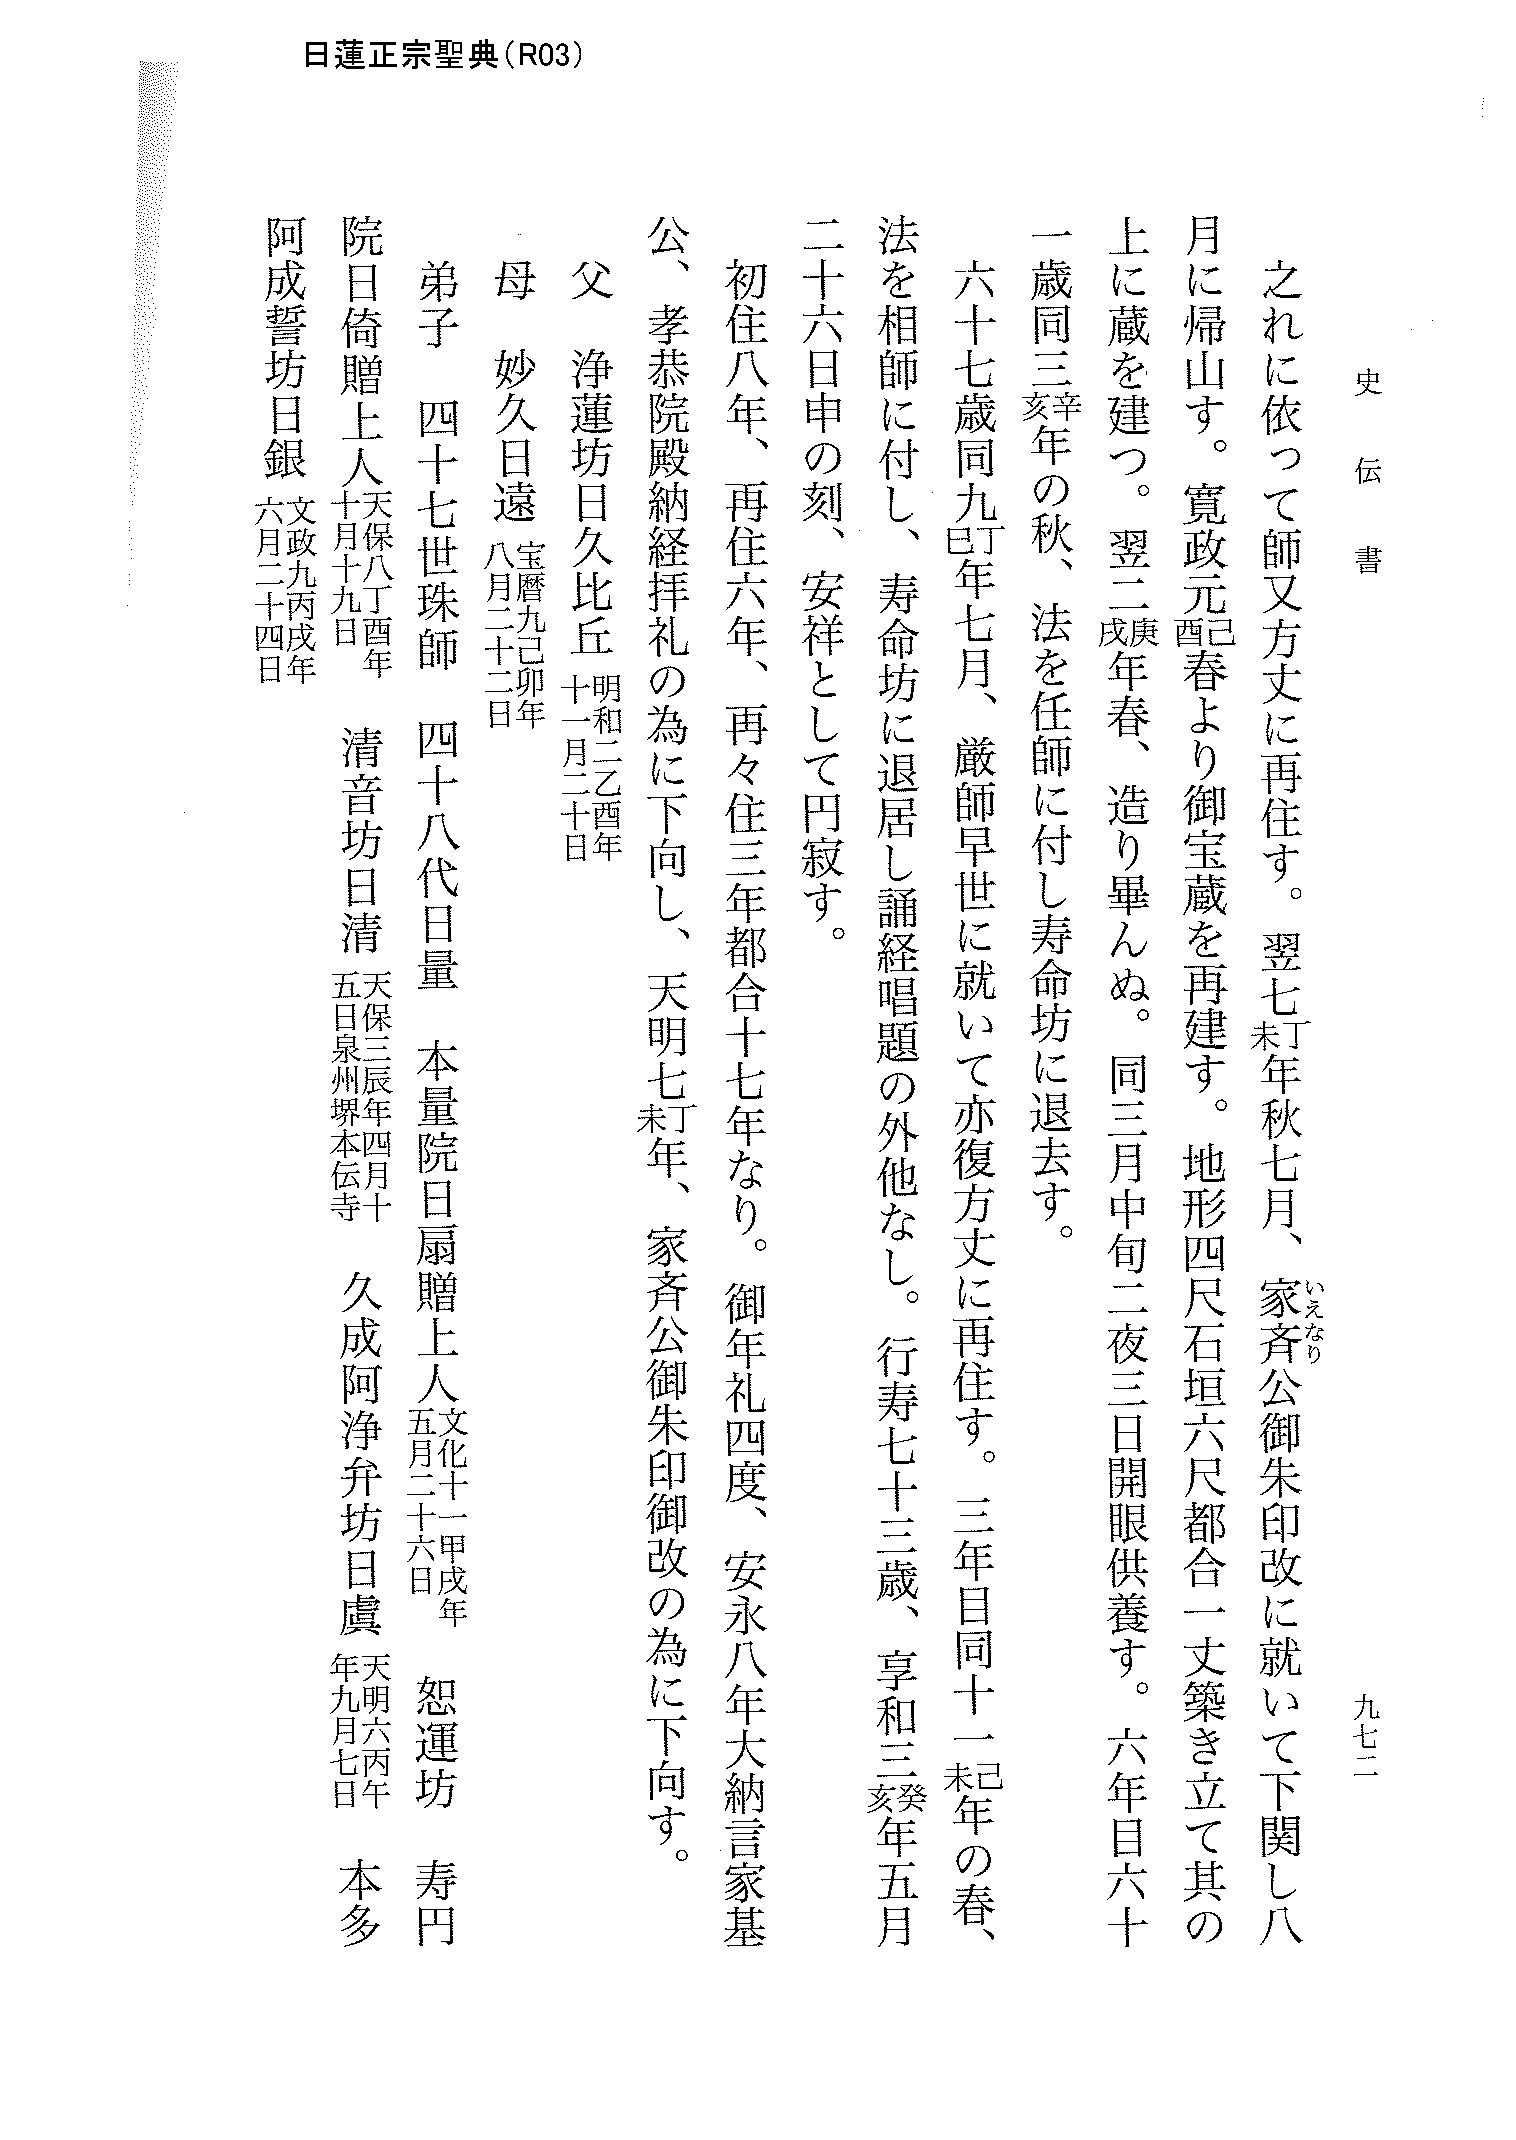 日蓮正宗聖典（R03）
史伝書
九七二
之れに依って師又方丈に再住す。翌七丁未年秋七月、家斉公御朱印改に就いて下関し八
いえなり
月に帰山す。寛政元己酉春より御宝蔵を再建す。地形四尺石垣六尺都合一丈築き立て其の
上に蔵を建つ。翌二庚戌年春、造り畢んぬ。同三月中旬二夜三日開眼供養す。六年目六十
一歳同三辛亥年の秋、法を任師に付し寿命坊に退去す。
六十七歳同九丁巳年七月、厳師早世に就いて亦復方丈に再住す。三年目同十一己未年の春、
法を相師に付し、寿命坊に退居し誦経唱題の外他なし。行寿七十三歳、享和三癸亥年五月
二十六日申の刻、安祥として円寂す。
初住八年、再住六年、再々住三年都合十七年なり。御年礼四度、安永八年大納言家基
公、孝恭院殿納経拝礼の為に下向し、天明七丁未年、家斉公御朱印御改の為に下向す。
父　浄蓮坊日久比丘　明和二乙酉年十一月二十日
母　妙久日遠　宝暦九己卯年八月二十二日
弟子　四十七世珠師　四十八代日量　本量院日扇贈上人文化十一甲戌年五月二十六日　恕運坊　寿円
院日倚贈上人天保八丁酉年十月十九日　清音坊日清　天保三辰年四月十五日泉州堺本伝寺　久成阿浄弁坊日虞　天明六丙午年九月七日　本多
阿成誓坊日銀　文政九丙戌年六月二十四日